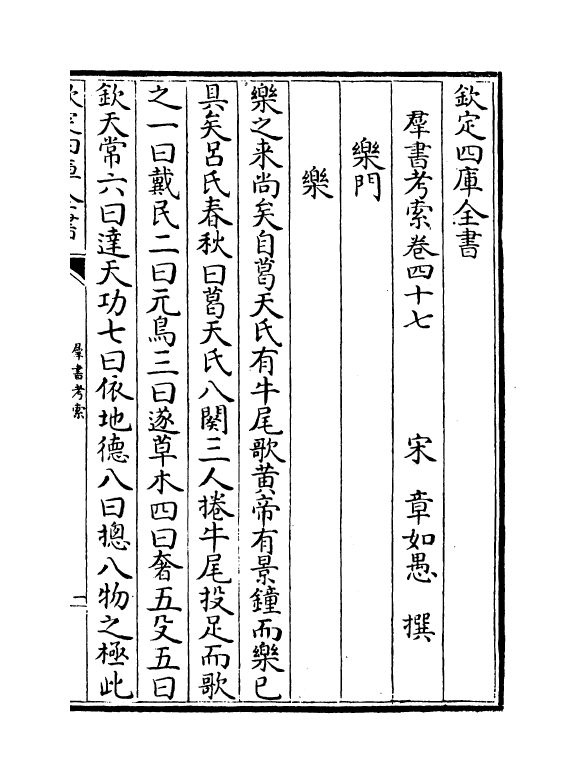 欽定四庫全書
羣書考索卷四十七 宋 章如愚 撰
樂門
樂
樂之来尚矣自葛天氏有牛尾歌黄帝有景鐘而樂已
具矣呂氏春秋曰葛天氏八闋三人捲牛尾投足而歌
之一曰戴民二曰元鳥三曰遂草木四曰奮五㕛五曰
欽天常六曰達天功七曰依地德八曰摠八物之極此
欽定四庫全書
羣書考索